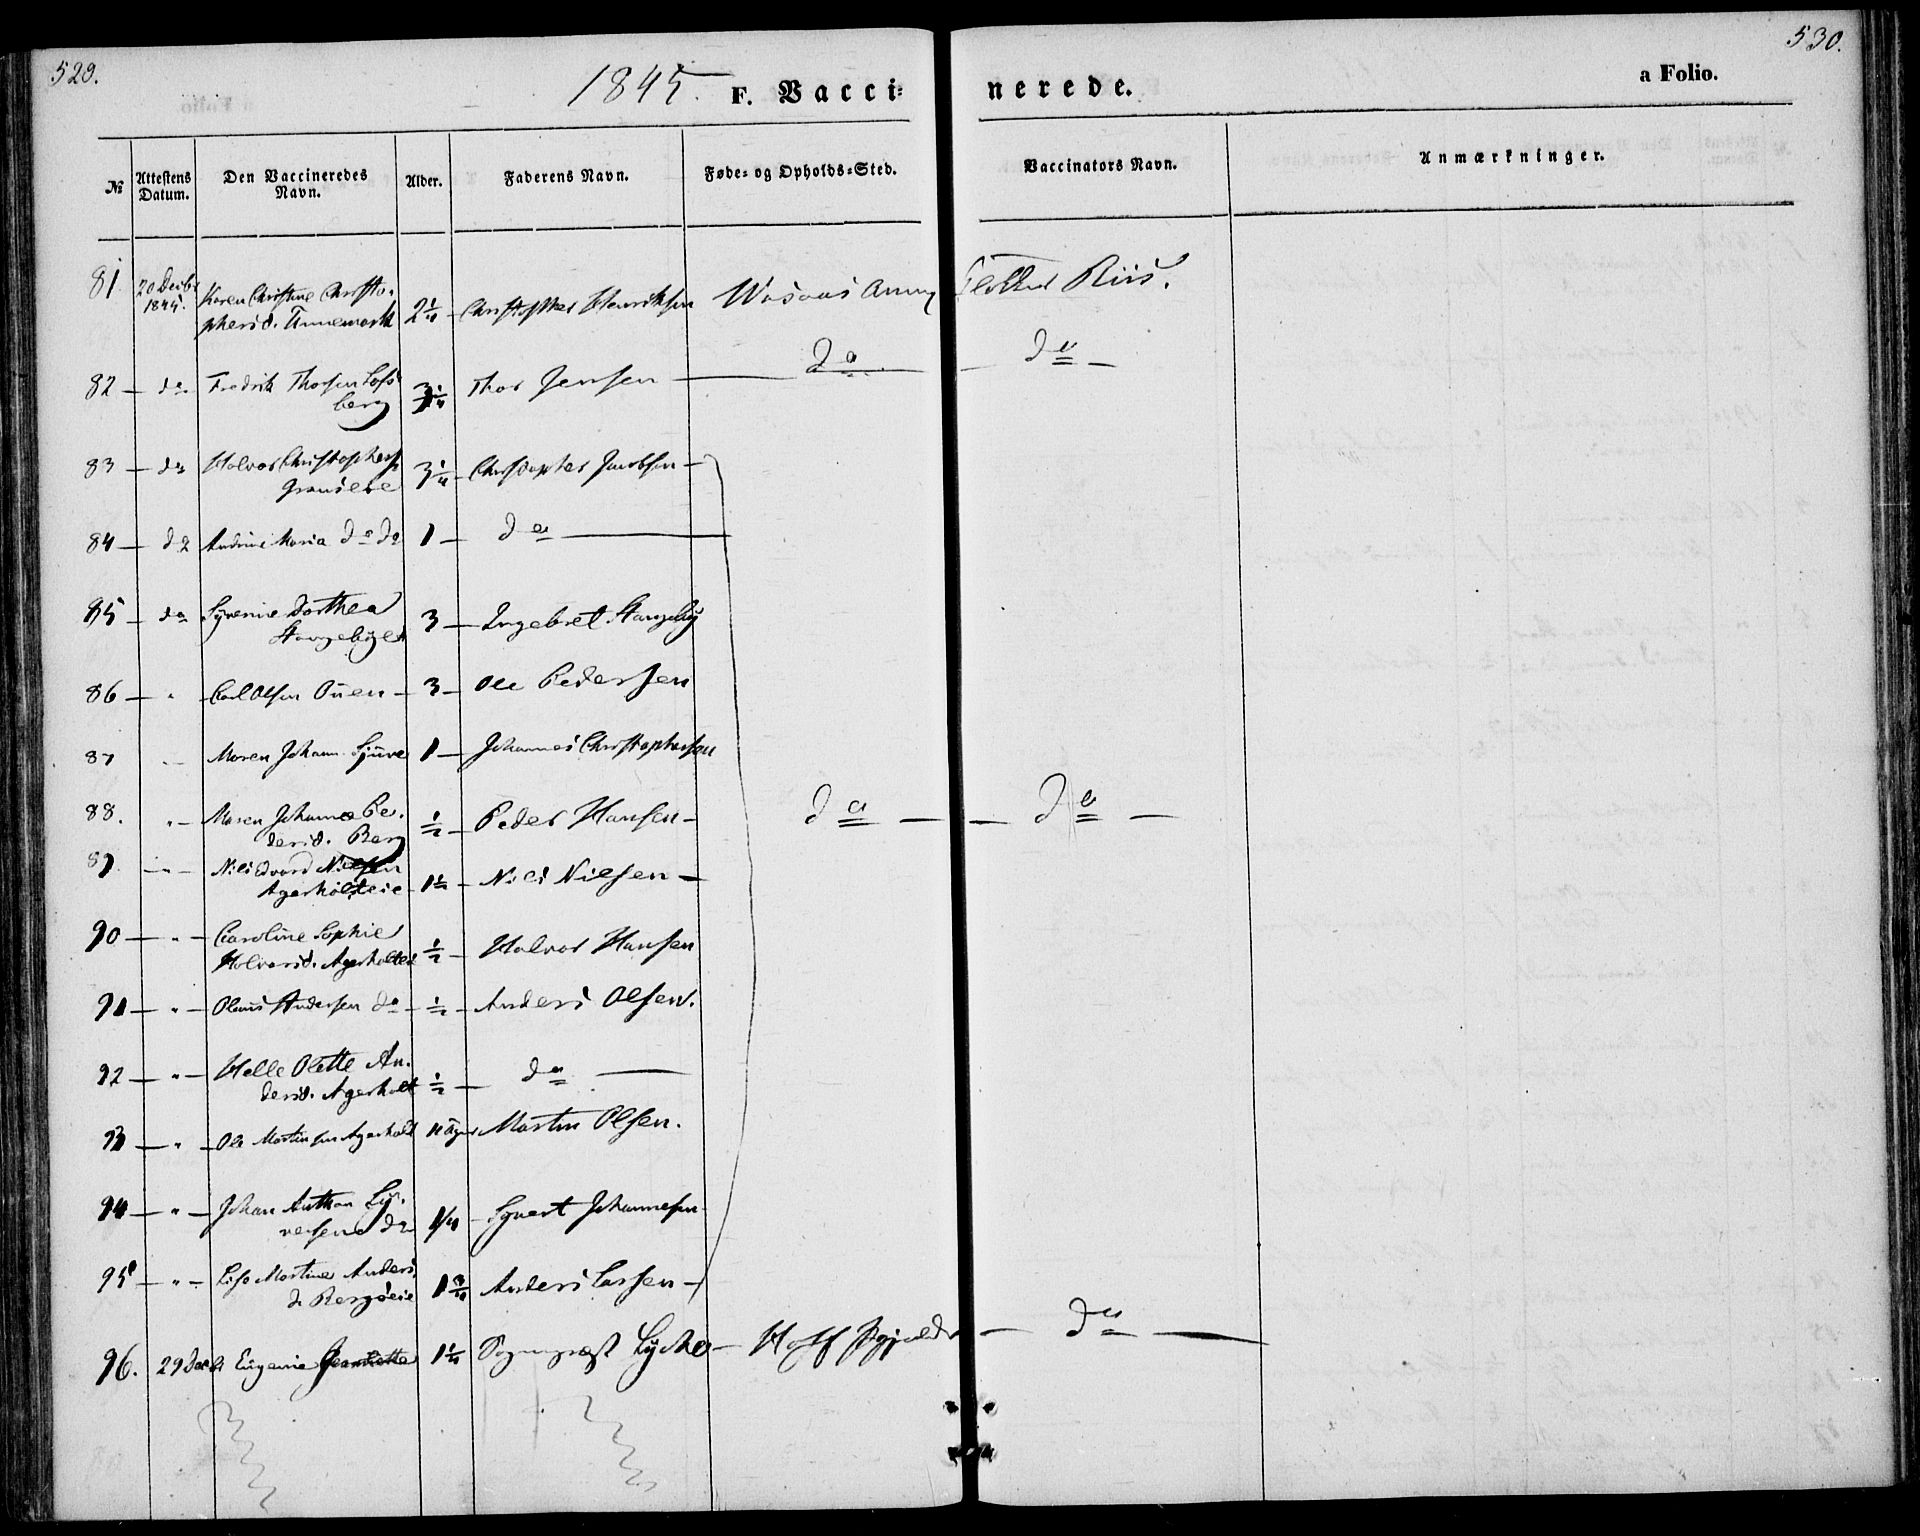 529.
530.
1845. F. Vacci=
nerede.
a Folio.
№
Attestens Datum.
Den Vaccineredes Navn.
Alder.
Faderens Navn.
Føde= og Opholds=Sted.
Vaccinators Navn.
Anmærkninger.
81 20 Decbr 1845. Karen Christine Christo-
phersd. 2 1/4 Christopher Henriksen Riis.
82 — do Fredrik Thorsen
berg Thor Jensen — do — do —
83 — do Halvor Christophers
3 1/4 Christopher Jacobsen —
84 — do Maria do do 1 — do —
85 do Dorthea
3 — Ingebret Stangeby
86 — " — Carl Olsen — 3 — Ole Pedersen
87 Maren Johann 1 — Johannes Christophersen
88. " — Maren Johanne Pe-
dersd. Berg 1/2 — Peder Hansen — do — do —
89. — " — Nils Edvard Nielsen
Agerholteie 1 1/2 — Nils Nielsen —
90 — " — Caroline Sophie
Halvorsd. 1/2 — Halvor Hansen
91 — " — Olaus Andersen do — 1/2 — Anders Olsen.
92 — " — Helle Olette An-
dersd. Agerholt 1/2 — do —
93 — " — Ole Martinsen Agerholt Martin Olsen.
94 — " — Johan Anthon Sy-
versen do 1/4 Syvert Johannesen
95 — " — Martine Anders
d. Bergseie 1 3/4 Anders Larsen —
96. 29 Decbr Eugenie 1 1/4 Sognepræst Lycke — Hoff — do —